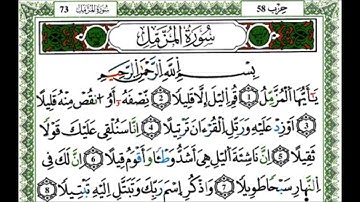 73 سُورَةُ المُزَّمِّل
حِزْب 58
سُورَةُ المُزَّمِّل
بِسْمِ اللَّهِ الرَّحْمَٰنِ الرَّحِيمِ
يَٰأَيُّهَا اَ۬لْمُزَّمِّلُ 1 قُمِ اِ۬ليْلَ إِلَّا قَلِيلاٗ 2 نِّصْفَهُۥٓ أَوُ اُ۟نقُصْ مِنْهُ قَلِيلاً
3 اَوْ زِدْ عَلَيْهِ وَرَتِّلِ اِ۬لْقُرْءَانَ تَرْتِيلاً 4 اِنَّا سَنُلْقِے عَلَيْكَ قَوْلاٗ
ثَقِيلاً 5 اِنَّ نَاشِئَةَ اَ۬ليْلِ هِيَ أَشَدُّ وَطْـٔاٗ وَأَقْوَمُ قِيلاً 6 اِنَّ لَكَ فِے
اِ۬لنَّهارِ سَبْحاٗ طَوِيلاٗ 7 وَاذْكُرِ اِ۪سْمَ رَبِّكَ وَتَبَتَّلِ اِلَيْهِ تَبْتِيلاٗ 8